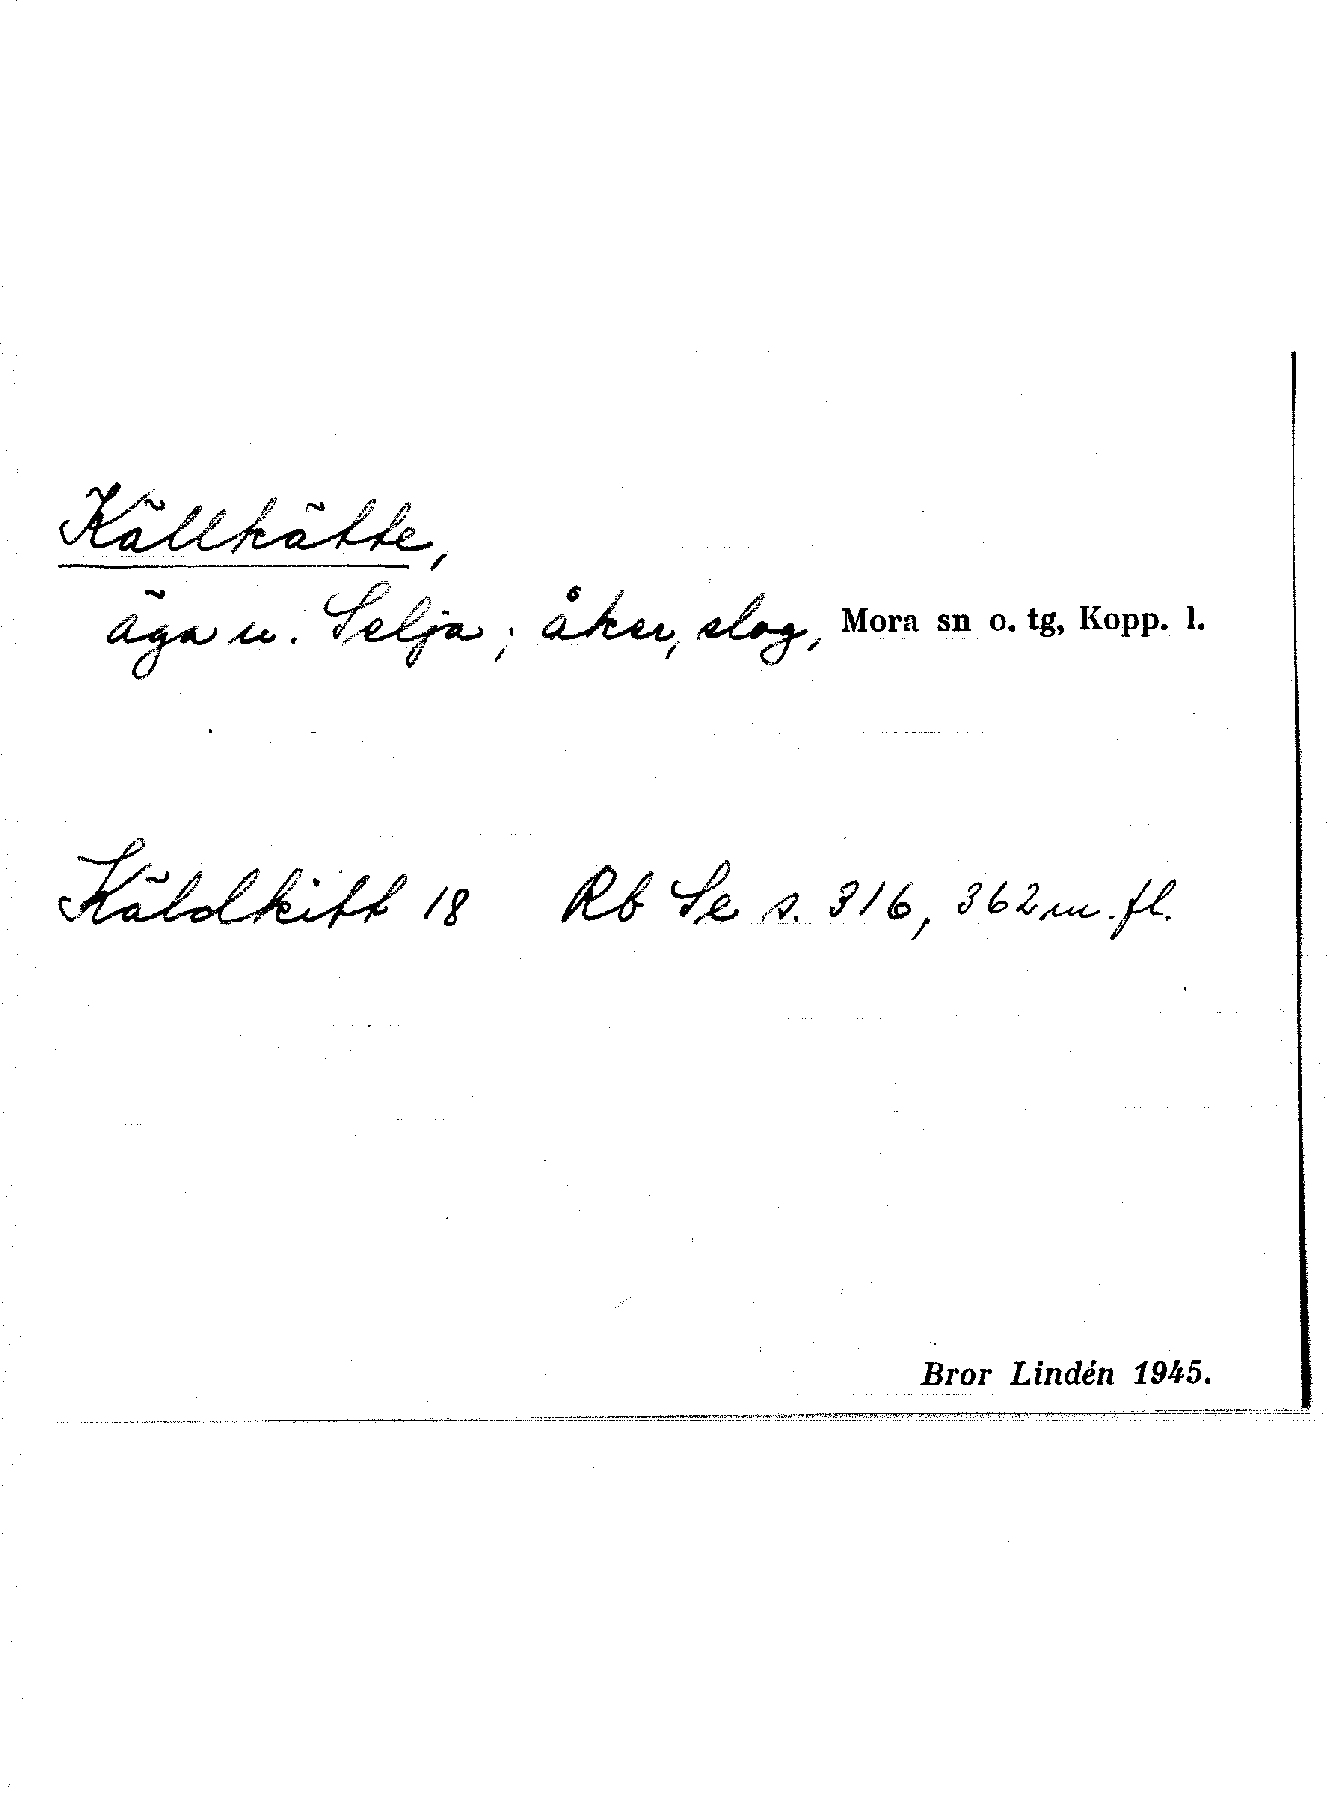 Källkätte,
äga u. Selja; åker, slog, Mora sn o. tg, Kopp. l.
Käldkitt 18 Rb Se s. 316, 362 m. fl.
Bror Lindén 1945.